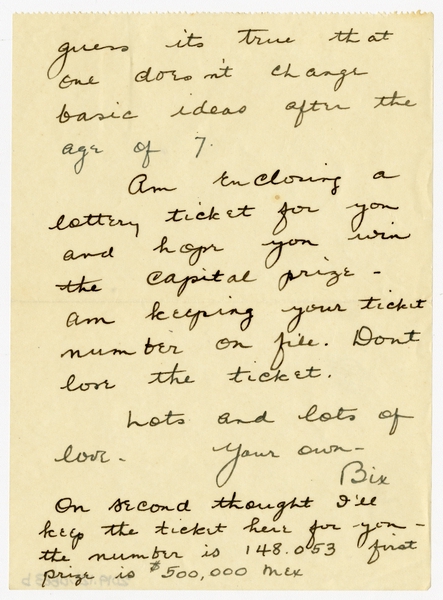 guess its true that
one doesn't change
basic ideas after the
age of 7.
Am enclosing a
lottery ticket for you
and hope you win
the capital prize -
am keeping your ticket
number on file. Dont
lose the ticket.
Lots and lots of
love. Your own -
Bix
On second thought I'll
keep the ticket here for you -
the number is 148.053 first
prize is $500,000 Mex